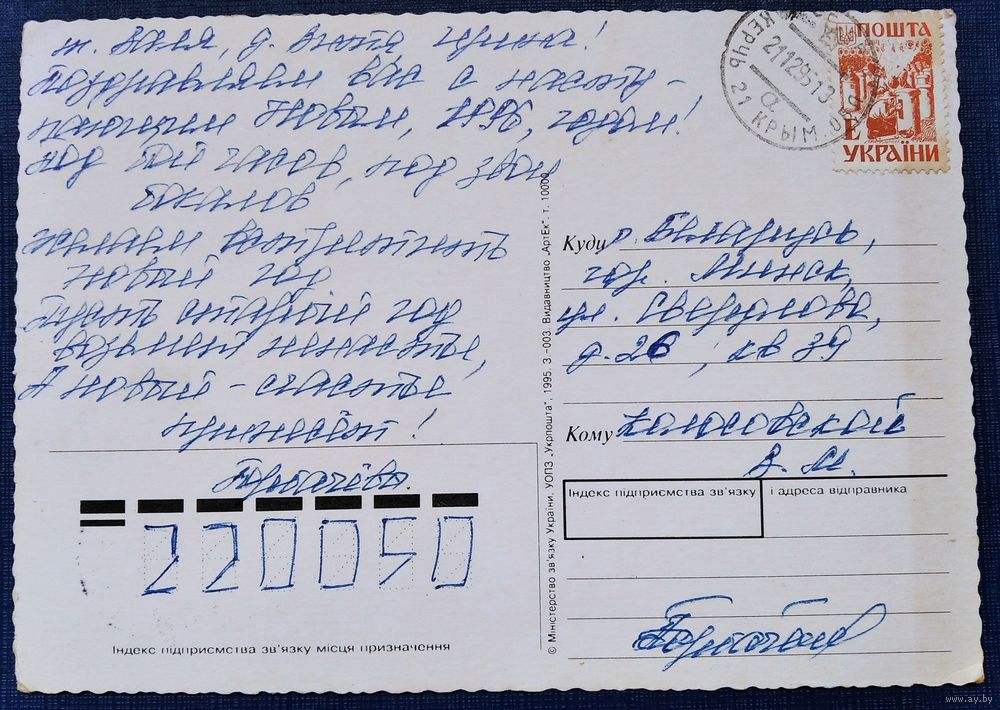 т. Валя, д. Витя Ирина!
Поздравляем вас с насту-
пающим Новым, 1996, годом!
под бой часов, под звон
бокалов
желаем встретить
новый год
Пусть старый год
возьмёт ненастье,
А новый - счастье
принесёт!
220050
Індекс підприємства зв'язку місця призначення
© Міністерство зв'язку України. УОПЗ „Укрпошта", 1995. З-003. Видавництво „АртЕк". т. 10000.
КЕРЧЬ 21 КРЫМ
21129513
ПОШТА
Е
УКРАЇНИ
Куди р. Беларусь,
гор. Минск,
ул. Свердлова,
д. 26, кв 39
Кому Колосовской
В. М.
Індекс підприємства зв'язку і адреса відправника
www.ay.by